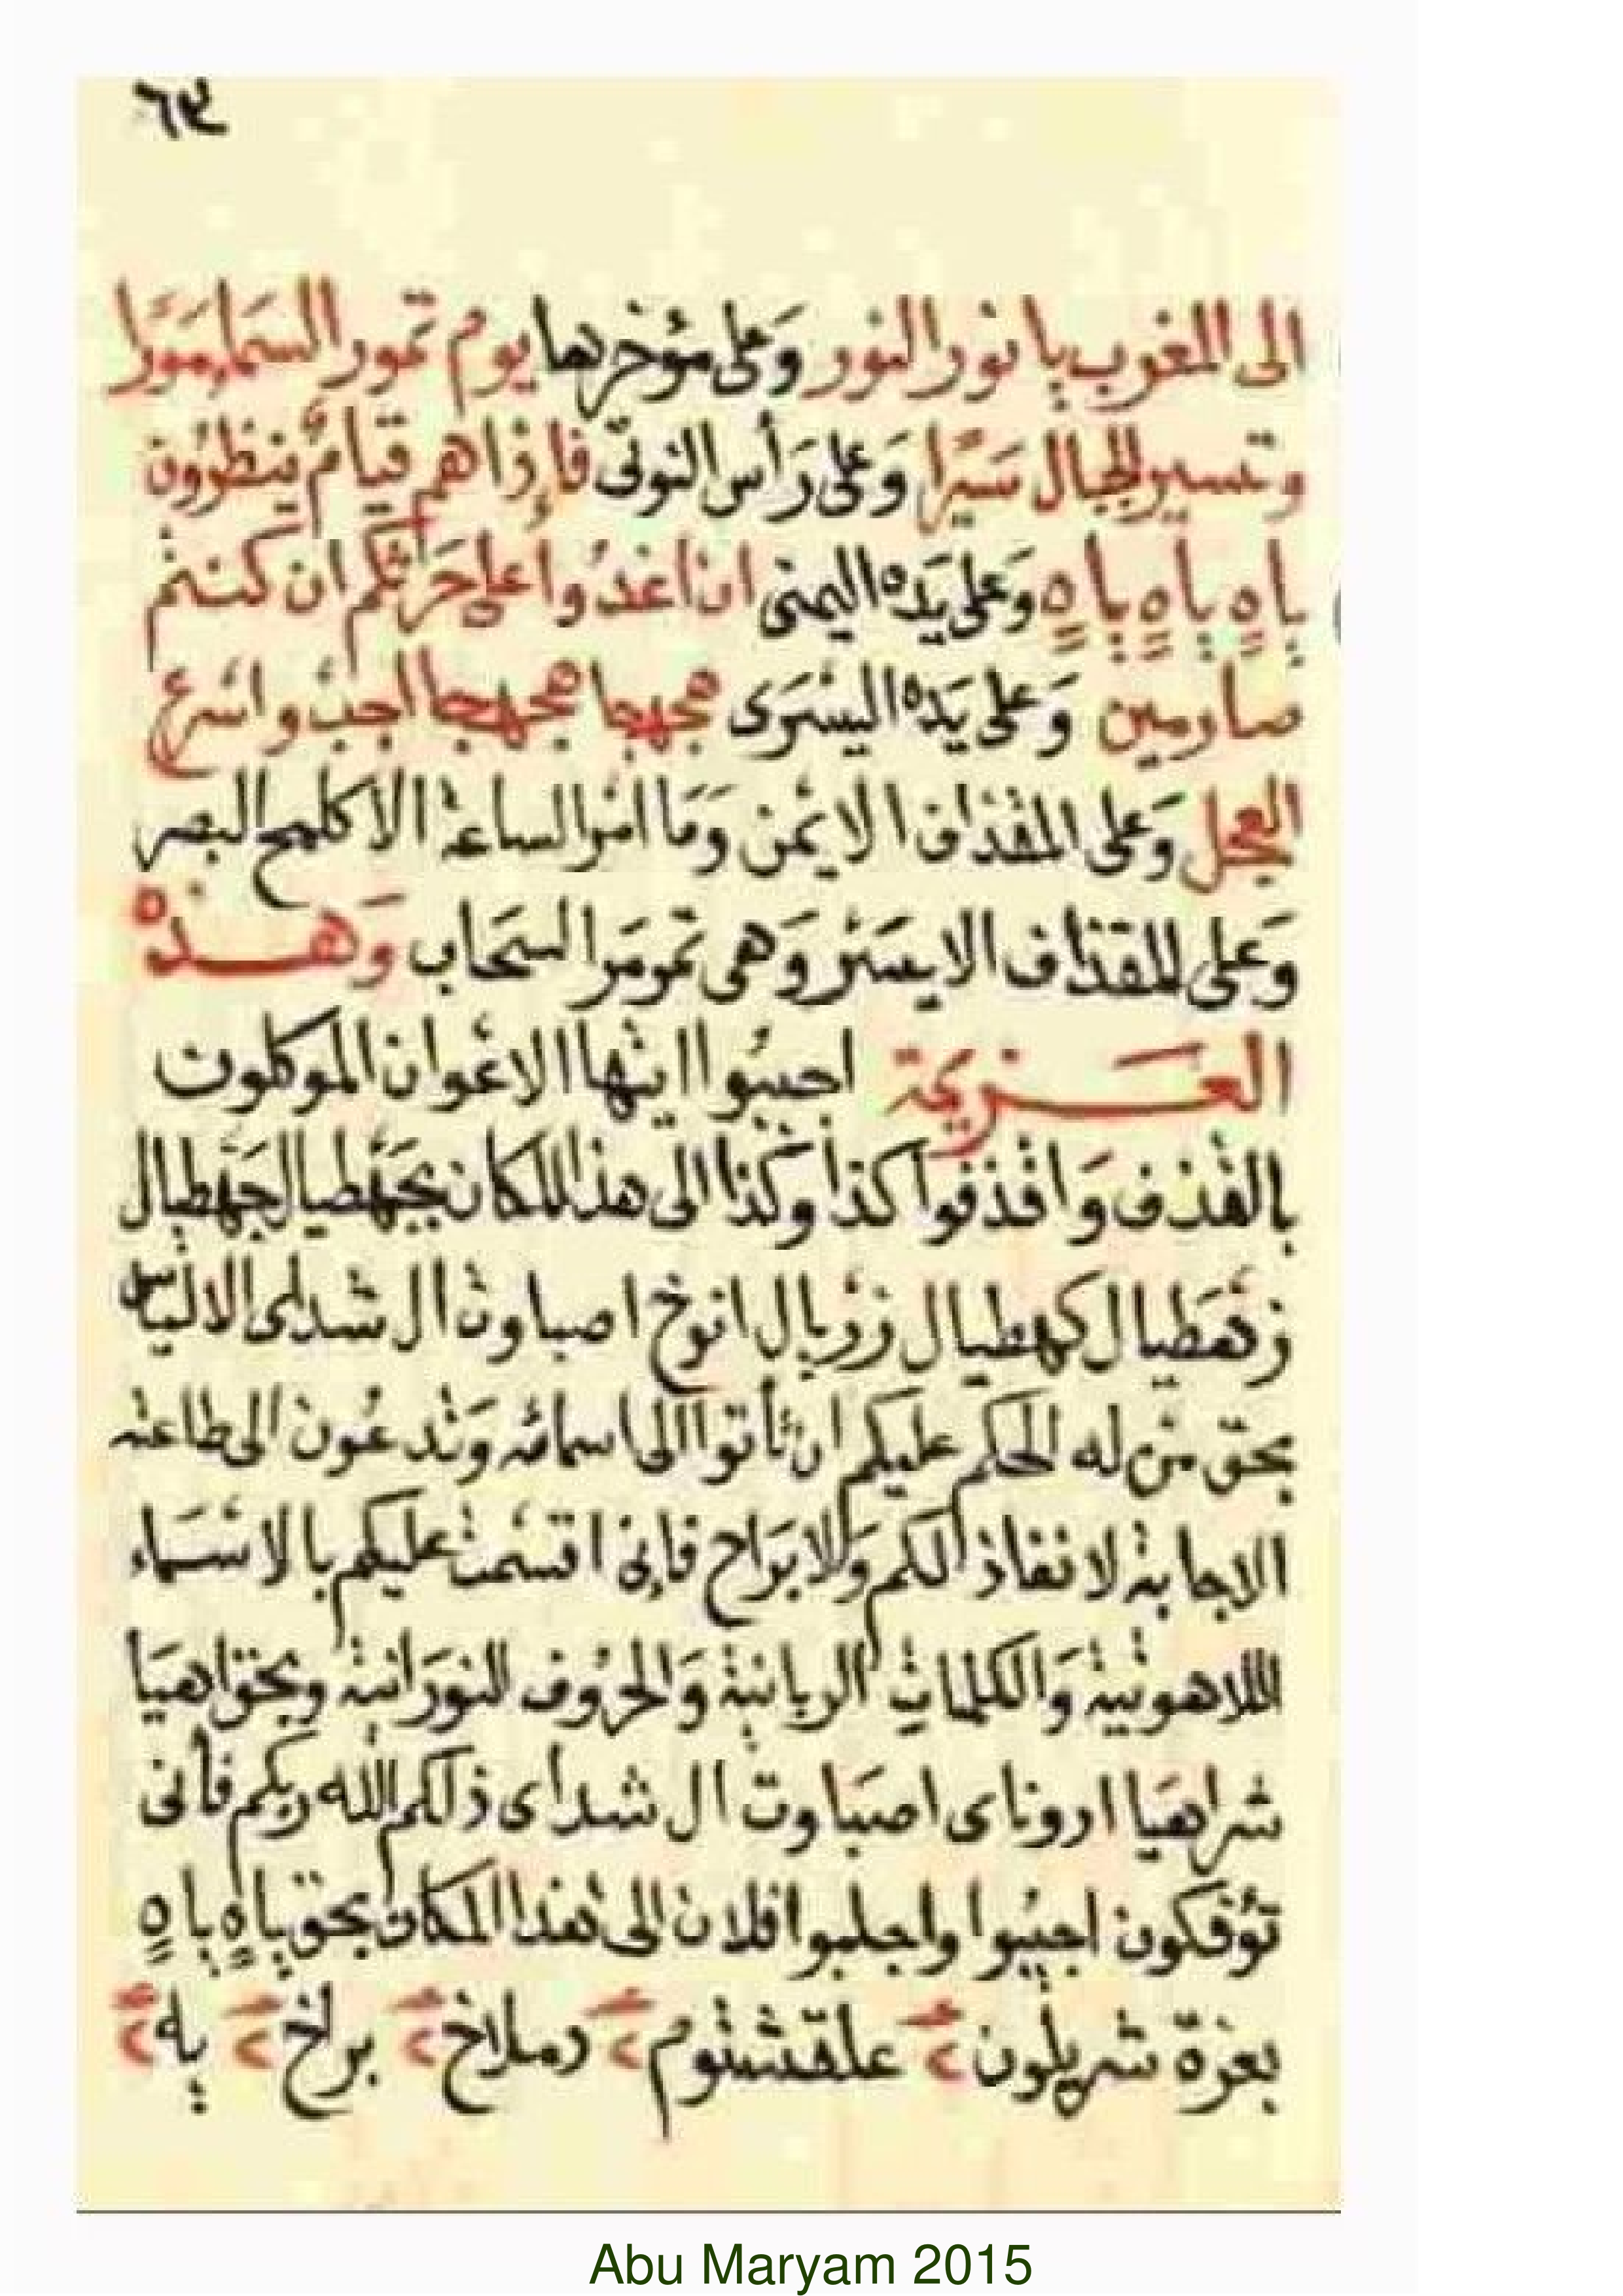 ٦٤
الى المغرب يا نور النور وَعلى مؤخرها يوم تمور السماء مَورًا
وتسير الجبال سَيْرًا وَعلى رَأس النوتى فإذاهم قيامٌ ينظرُون
ياهٍ ياهٍ ياهٍ وعلى يَدَه اليمنى ان اغدُوا على حَرثكم ان كنتم
صارمين وَعلى يَدَه اليسْرَى مجهجا مجهجا اجبْ واسْرعْ
العجل وَعلى المقذاف الايْمن وَمَا امْر الساعة الا كلمح البصر
وَعلى المقذاف الايسَرْ وَهى تمر مَر السَحَاب وَهذه
العزيمة اجيبُوا ايتها الاعْوان الموكلون
بالقذف وَاقذفوا كذا وكذا الى هذا المكان بجَهْطيال جَهْطيال
كهطيال زرْيال انوخ اصباوت ال شداى
بحق من له الحكم عليكم ان تأتوا الى اسمائه وَتدعُون الى طاعته
الاجابة لا نفاذ لكم وَلا بَرَاح فإنى اقسَمت عليكم بالاسْمَاء
اللاهوتية وَالكلماتِ الربانية وَالحرُوف النورَانية وبحق اهيَا
شراهيَا ادوناى اصبَاوت ال شداى ذلكم الله ربكم فأنى
تؤفكون اجيبُوا واجلبوا فلان الى هذا المكان بحق ياهٍ ياهٍ
بعزة شريلون ٢ علقشتوم ٢ دملاخ ٢ براخ ٢ يله ٢
Abu Maryam 2015